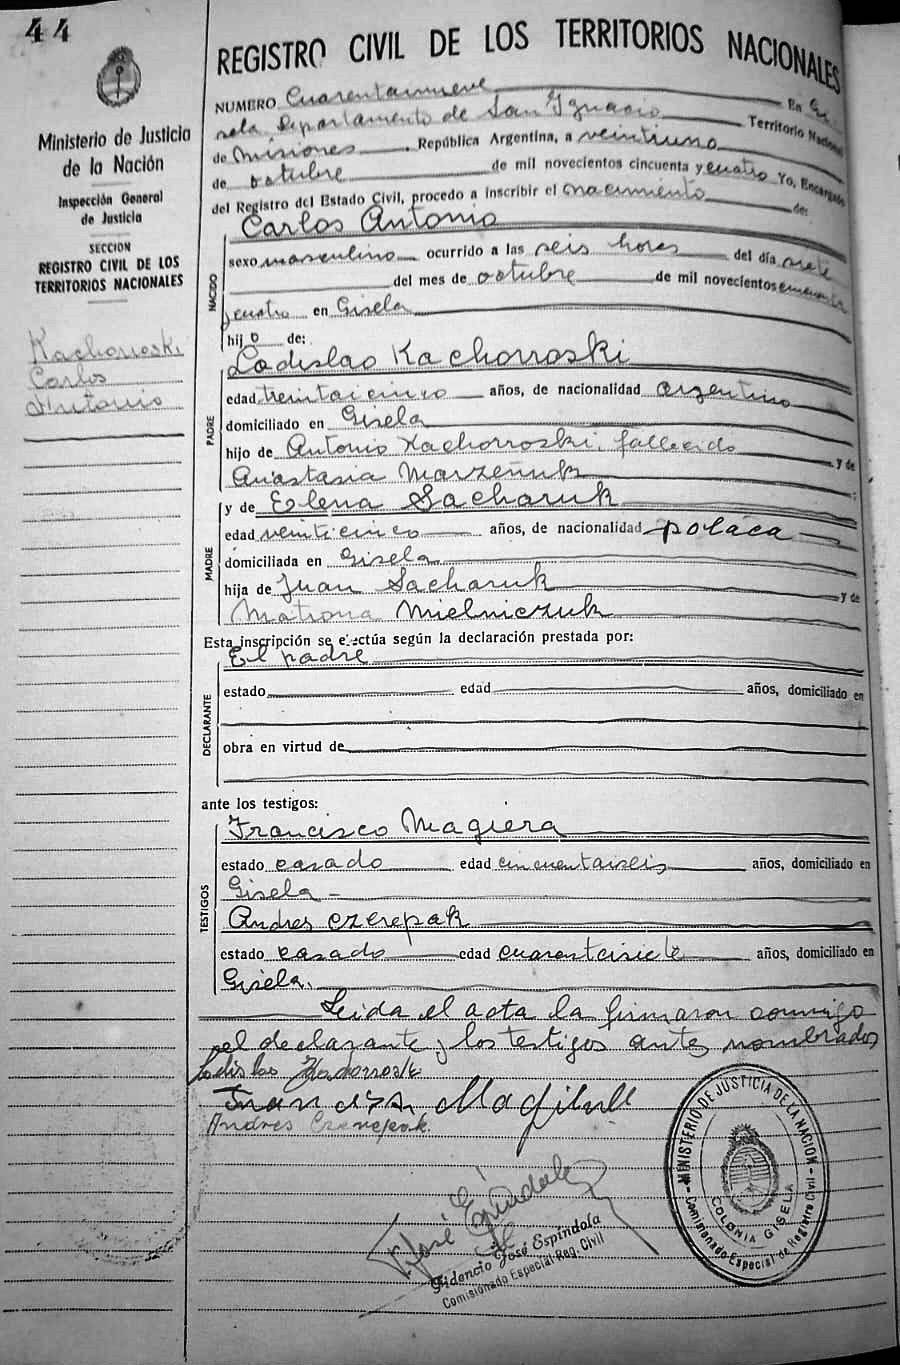 44
Ministerio de Justicia
de la Nación
Inspección General
de Justicia
SECCION
REGISTRO CIVIL DE LOS
TERRITORIOS NACIONALES
Kachorroski
Carlos
Antonio
REGISTRO CIVIL DE LOS TERRITORIOS NACIONALES
NUMERO Cuarentanueve En Gi
sela Departamento de San Ignacio Territorio Nacional
de Misiones, República Argentina, a veintiuno
de octubre de mil novecientos cincuenta y cuatro Yo, Encargado
del Registro del Estado Civil, procedo a inscribir el nacimiento de:
NACIDO
Carlos Antonio
sexo masculino ocurrido a las seis horas del día siete
del mes de octubre de mil novecientos cincuenta
y cuatro en Gisela
hijo de:
PADRE
Ladislao Kachorroski
edad treintaicinco años, de nacionalidad argentino
domiciliado en Gisela
hijo de Antonio Kachorroski, fallecido y de
Anastasia Marzeñuk
MADRE
y de Elena Sacharuk
edad veinticinco años, de nacionalidad polaca
domiciliada en Gisela
hija de Juan Sacharuk y de
Matrona Mielniczuk
Esta inscripción se efectúa según la declaración prestada por:
DECLARANTE
El padre
estado edad años, domiciliado en
obra en virtud de
ante los testigos:
TESTIGOS
Francisco Magiera
estado casado edad cincuentaiseis años, domiciliado en
Gisela -
Andres Czerepak
estado casado edad cuarentaisiete años, domiciliado en
Gisela.
Leida el acta la firmaron conmigo
el declarante y los testigos antes nombrados
Andres Czerepak.
José Espíndola
Fidencio José Espíndola
Comisionado Especial Reg. Civil
MINISTERIO DE JUSTICIA DE LA NACION
COLONIA GISELA
Comisionado Especial de Registro Civil